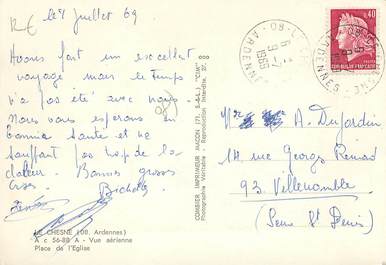 le 7 Juillet 69
Avons fait un excellent
voyage mais le temps
n'a pas été avec nous.
Nous vous espérons en
bonnie Santé et ne
Souffrant pas trop de la
chaleur. Bonnes grosses
bises.
LE CHESNE (08. Ardennes)
A c 56-88 A - Vue aérienne
Place de l'Eglise
COMBIER IMPRIMEUR MACON (71. S.-&-L.) "CIM"
Photographie Véritable - Reproduction Interdite
LE CHESNE
ARDENNES
1969
0,40
REPUBLIQUE FRANCAISE
A. Dujardin
14 rue Georges Renard
93. Villemomble
(Seine St Denis)